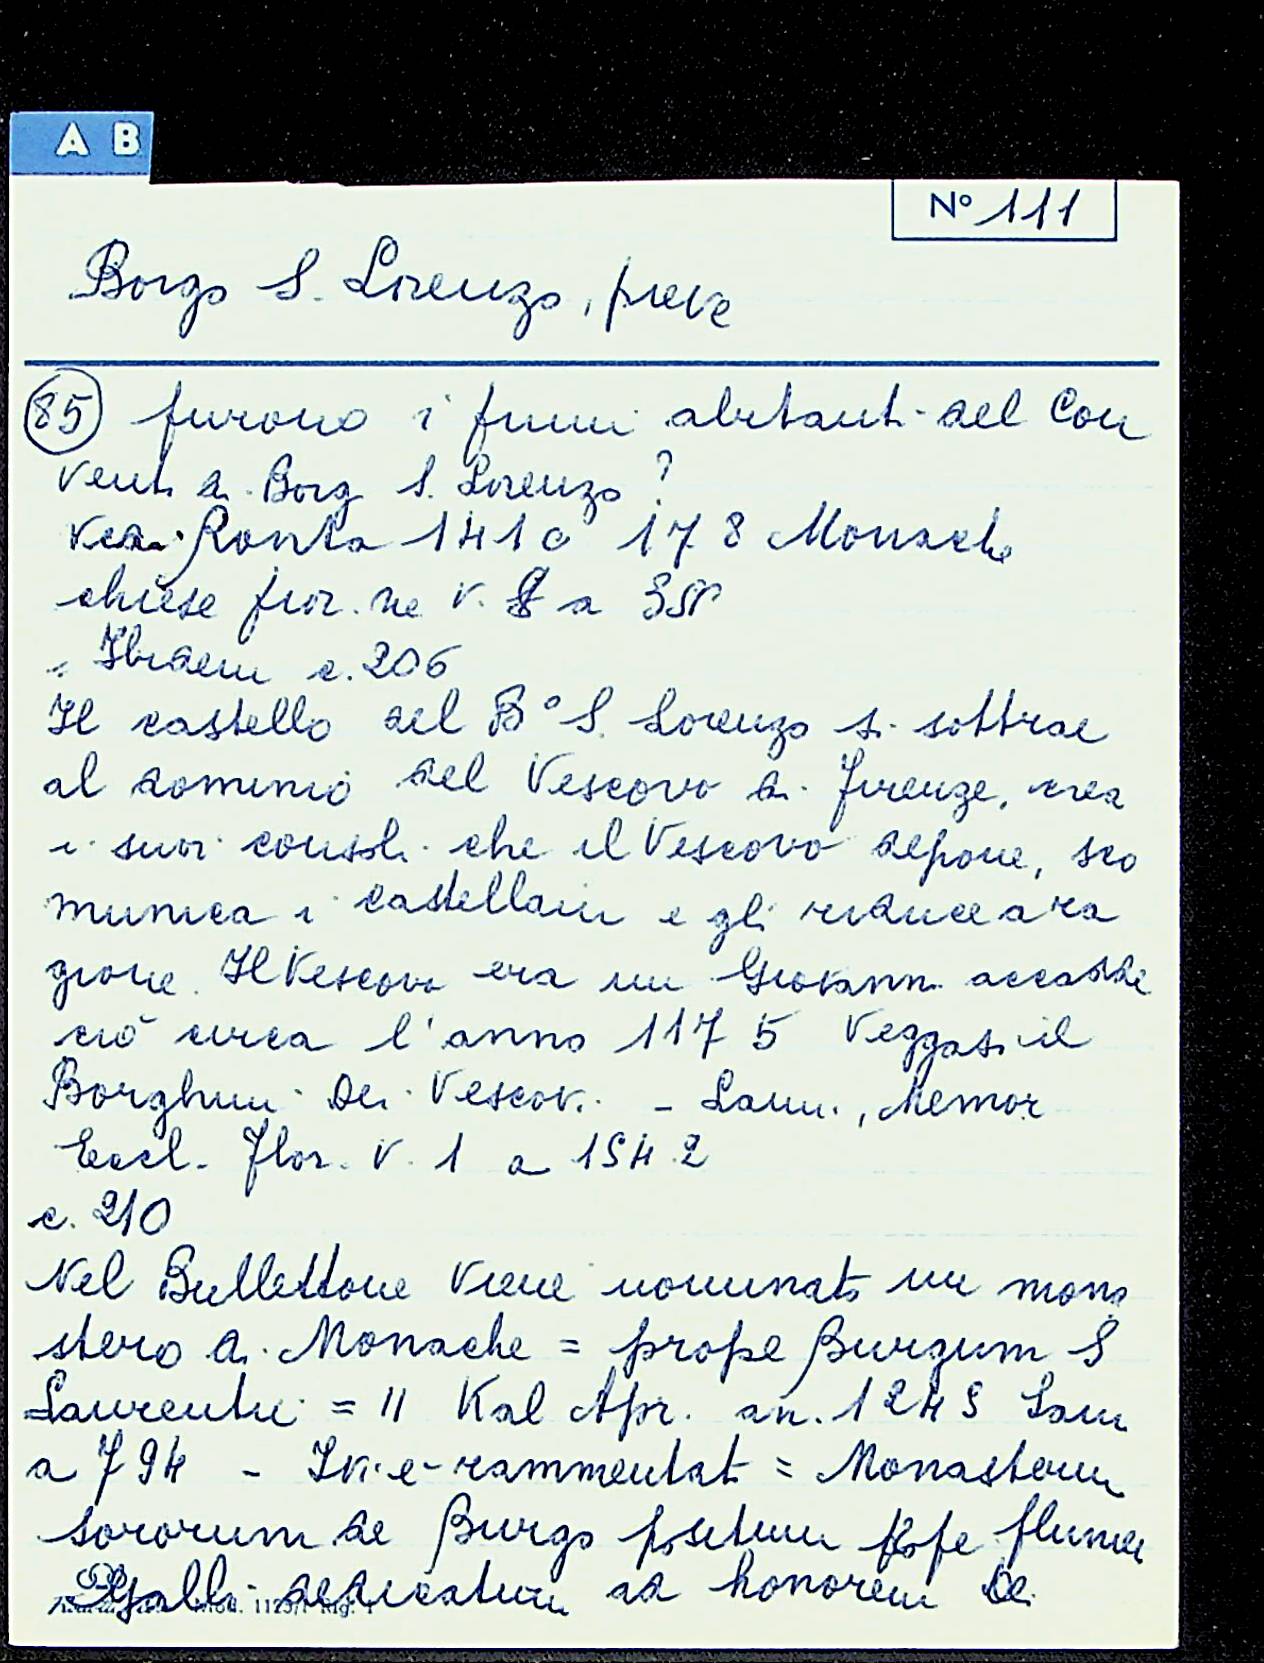 A B
Nº 111
Borgo S. Lorenzo, pieve
85 furono i primi abitanti del Con
vento di Borgo S. Lorenzo?
vedi Ronta 1410 178 Monache
chiese fior. ne v. 8 a
Ibidem c. 206
Il castello del Bº S. Lorenzo si sottrae
al dominio del Vescovo di Firenze, crea
i suoi consoli che il Vescovo depone, sco
munica i castellani e gli riduce a ra
gione. Il Vescovo era un Giovanni accadde
ciò circa l'anno 1175 Veggasi il
Borghini Dei Vescovi - Lami, Memor
Eccl. Flor. V. 1 a 1542
c. 210
Nel Bullettone viene nominato un mona
stero di Monache = prope Burgum S
Laurentii = II Kal Apr. an. 1243 Lami
a 794 - Ivi è rammentato = Monasterium
sororum de Burgo positum prope flumen
dedicatum ad honorem Dei